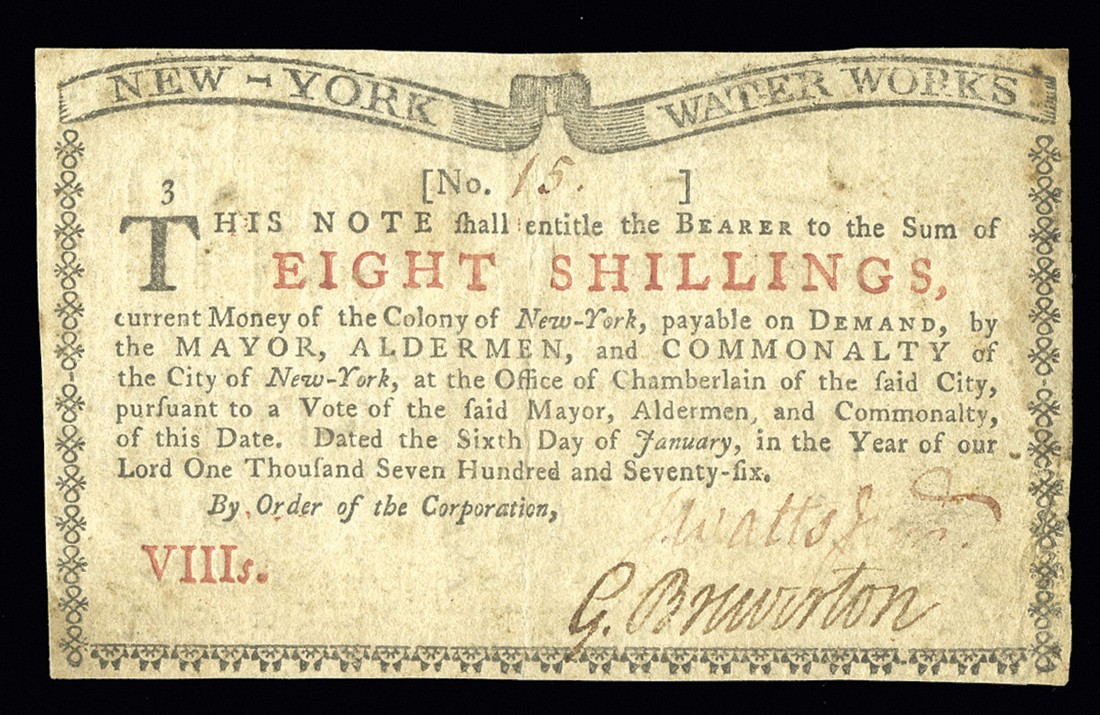 NEW-YORK WATER WORKS
[No. 15. ]
3
THIS NOTE ſhall entitle the BEARER to the Sum of
EIGHT SHILLINGS,
current Money of the Colony of New-York, payable on DEMAND, by
the MAYOR, ALDERMEN, and COMMONALTY of
the City of New-York, at the Office of Chamberlain of the ſaid City,
purſuant to a Vote of the ſaid Mayor, Aldermen, and Commonalty,
of this Date. Dated the Sixth Day of January, in the Year of our
Lord One Thouſand Seven Hundred and Seventy-ſix.
By Order of the Corporation,
J. Watts Jun.
VIIIs.
G. Brewerton